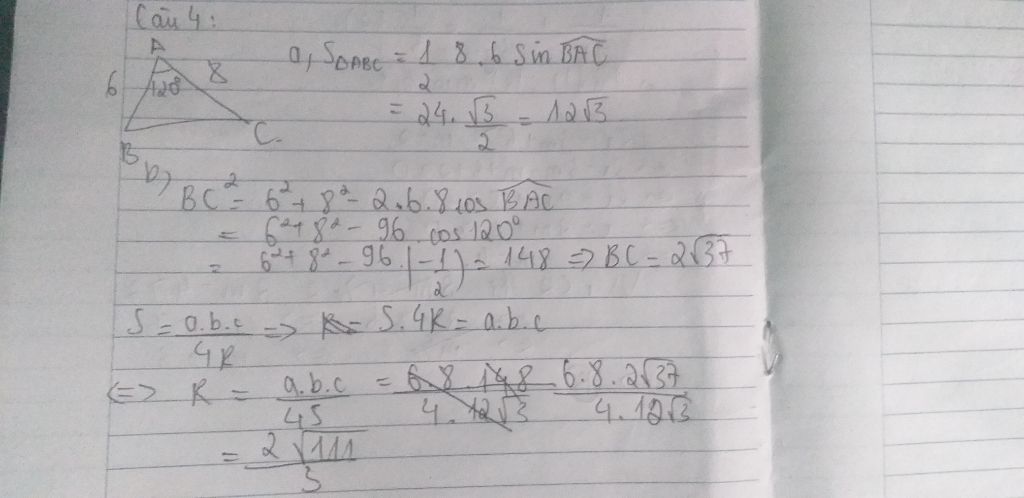 Câu 4:
A
6 120° 8
B C.
a, SΔABC = 1/2 8.6 Sin BAC
= 24. √3/2 = 12√3
b)
BC² = 6² + 8² - 2.6.8 cos BAC
= 6² + 8² - 96 . cos 120°
= 6² + 8² - 96 . (-1/2) = 148 => BC = 2√37
S = a.b.c/4R => S.4R = a.b.c
<=> R = a.b.c/4S = 6.8.148/4.12√3 6.8.2√37/4.12√3
= 2√111/3